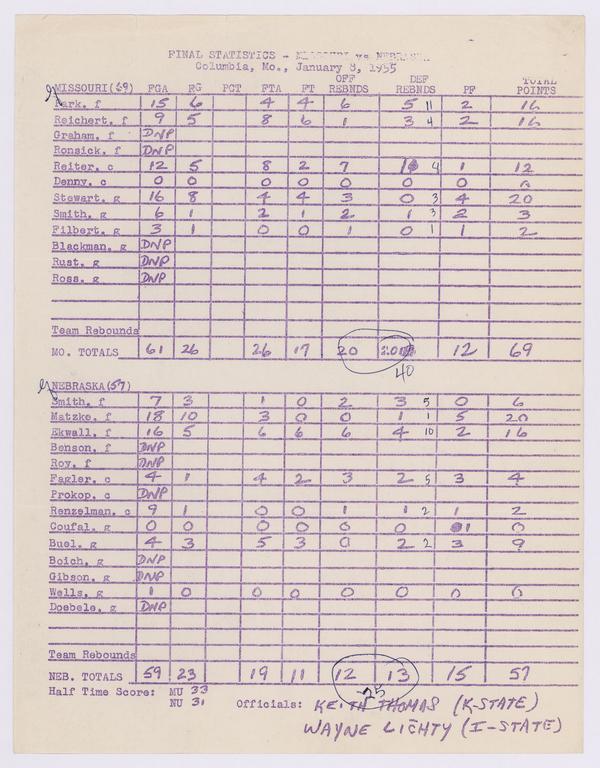 FINAL STATISTICS - MISSOURI vs NEBRASKA
Columbia, Mo., January 8, 1955
OFF DEF TOTAL
MISSOURI(69) FGA FG PCT FTA FT REBNDS REBNDS PF POINTS
Park, f 15 6 4 4 6 5 11 2 16
Reichert, f 9 5 8 6 1 3 4 2 16
Graham, f DNP
Ronsick, f DNP
Reiter, c 12 5 8 2 7 4 1 12
Denny, c 0 0 0 0 0 0 0 0
Stewart, g 16 8 4 4 3 0 3 4 20
Smith, g 6 1 2 1 2 1 3 2 3
Filbert, g 3 1 0 0 1 0 1 1 2
Blackman, g DNP
Rust, g DNP
Ross, g DNP
Team Rebounds
MO. TOTALS 61 26 26 17 20 20 12 69
40
NEBRASKA(57)
Smith, f 7 3 1 0 2 3 5 0 6
Matzke, f 18 10 3 0 0 1 1 5 20
Ekwall, f 16 5 6 6 6 4 10 2 16
Benson, f DNP
Roy, f DNP
Fagler, c 4 1 4 2 3 2 5 3 4
Prokop, c DNP
Renzelman, c 9 1 0 0 1 1 2 1 2
Coufal, g 0 0 0 0 0 0 1 0
Buel, g 4 3 5 3 0 2 2 3 9
Boich, g DNP
Gibson, g DNP
Wells, g 1 0 0 0 0 0 0 0
Doebele, g DNP
Team Rebounds
NEB. TOTALS 59 23 19 11 12 13 15 57
25
Half Time Score: MU 33
NU 31 Officials: KEITH THOMAS (K-STATE)
WAYNE LICHTY (I-STATE)